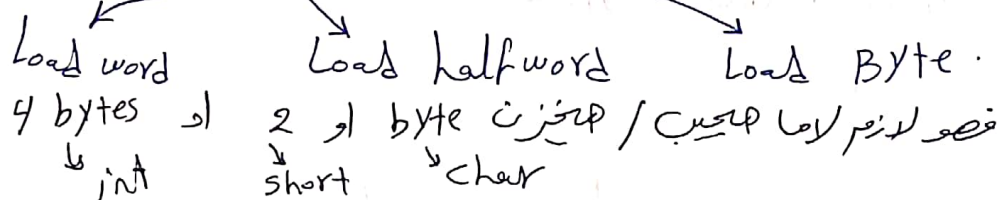 Load word Load halfword Load Byte.
فهو لازم لاما هيجيب / هيخزن byte او 2 او 4 bytes
int short char